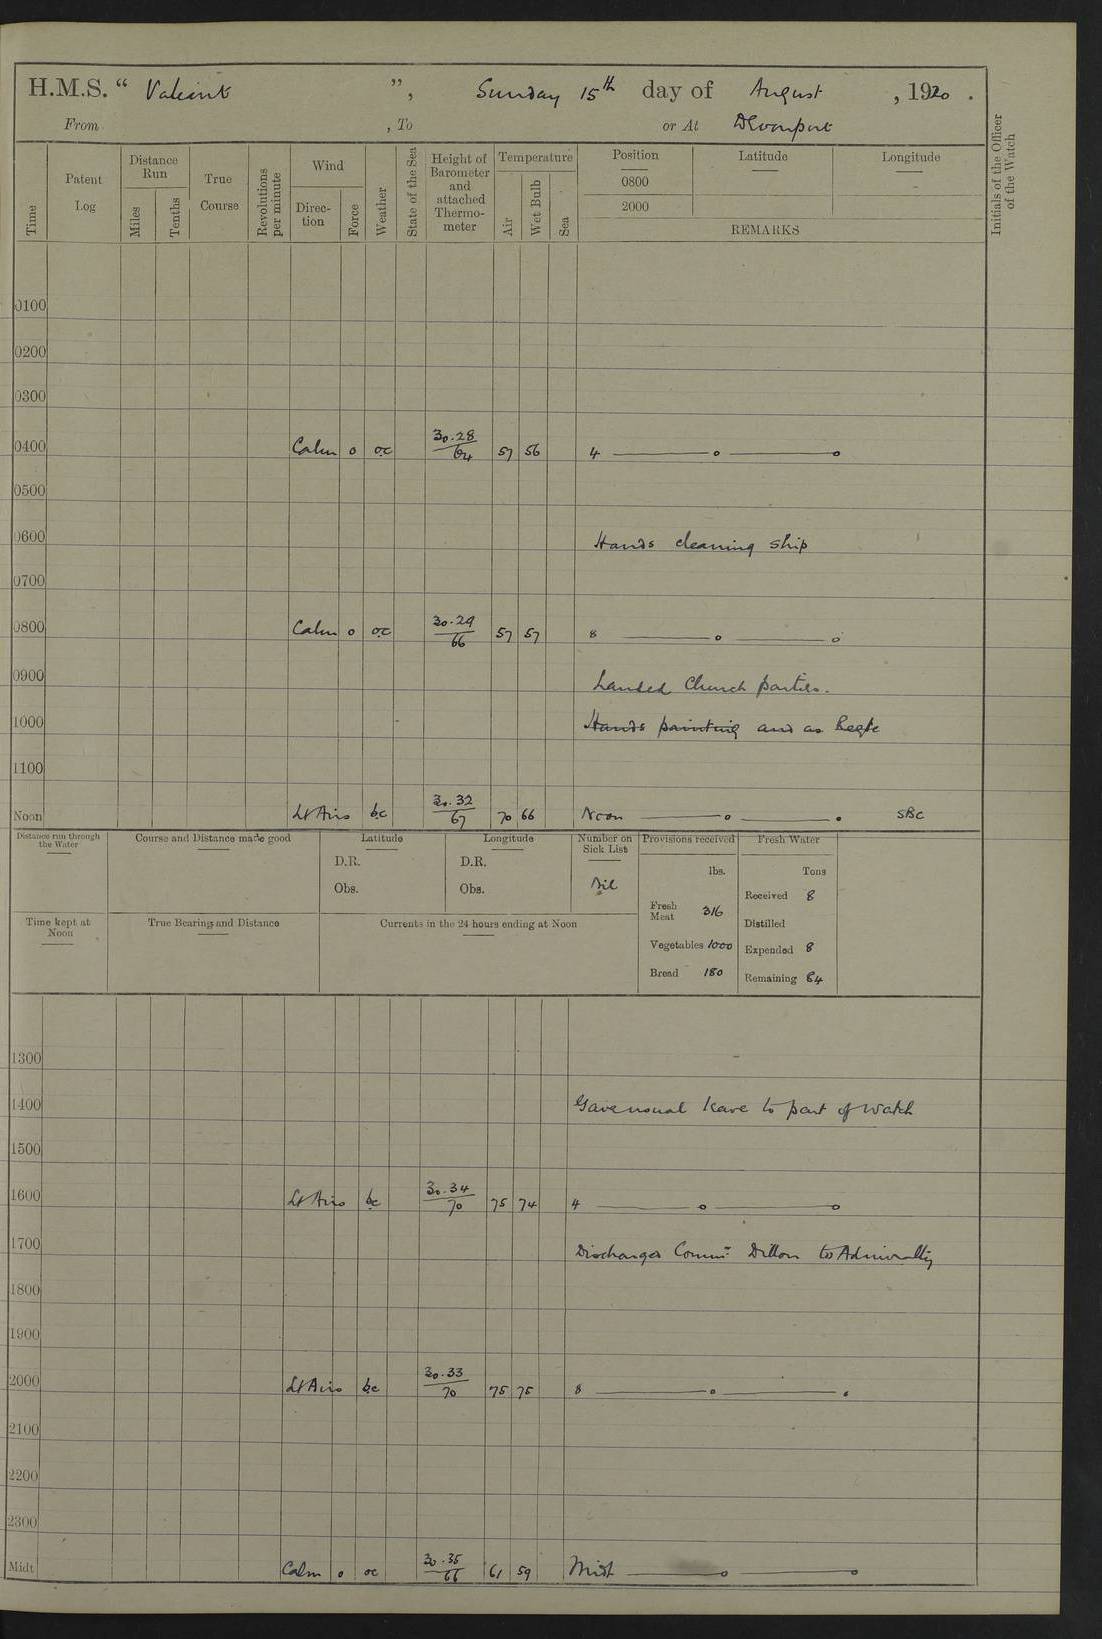 H.M.S. “ Valiant ”, Sunday 15th day of August , 1920 .
From , To or At Devonport
Time
Patent Log
Distance Run
Miles
Tenths
True Course
Revolutions per minute
Wind
Direc-tion
Force
Weather
State of the Sea
Height of Barometer and attached Thermo-meter
Temperature
Air
Wet Bulb
Sea
Position Latitude Longitude
0800
2000
REMARKS
Initials of the Officer of the Watch
0100
0200
0300
0400 Calm o oc 30.28/64 57 56 4 ——o——o
0500
0600 Hands cleaning ship
0700
0800 Calm o oc 30.29/66 57 57 8 ——o——o
0900 Landed Church parties.
1000 Hands painting and as Reqte
1100
Noon Lt Airs bc 30.32/67 70 66 Noon ——o——o SBC
Distance run through the Water
Course and Distance made good
Latitude
D.R.
Obs.
Longitude
D.R.
Obs.
Number on Sick List
Nil
Provisions received
lbs.
Fresh Meat 316
Vegetables 1000
Bread 180
Fresh Water
Tons
Received 8
Distilled
Expended 8
Remaining 64
Time kept at Noon
True Bearing and Distance
Currents in the 24 hours ending at Noon
1300
1400 Gave usual leave to part of watch
1500
1600 Lt Airs bc 30.34/70 75 74 4 ——o——o
1700 Discharged Comm Dillon to Admiralty
1800
1900
2000 Lt Airs bc 30.33/70 75 75 8 ——o——o
2100
2200
2300
Midt Calm o oc 30.35/66 61 59 Midt ——o——o